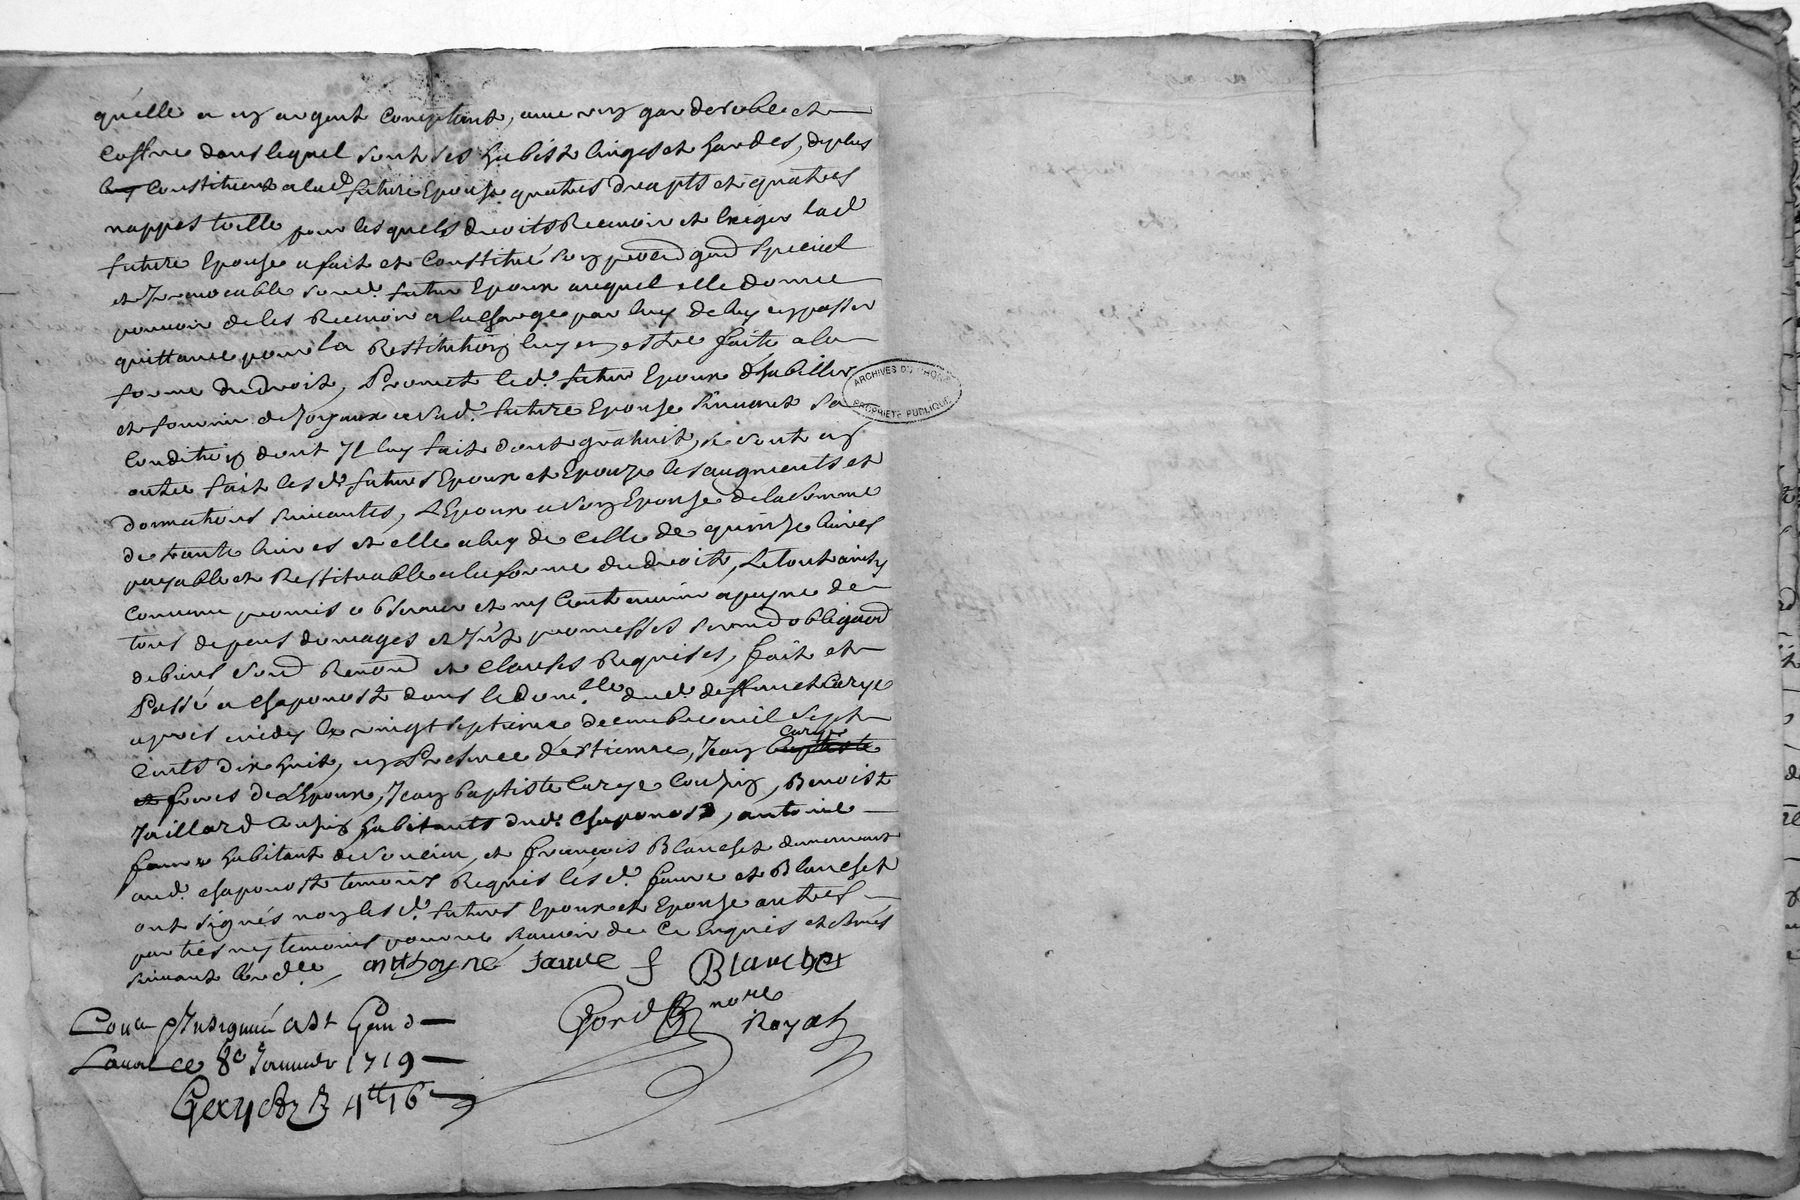 qu'elle a en argent comptant, avec un garderobe et
coffre dans lequel sont ses habist linges et hardes, de plus
constituent a lad future Epouse quatres draapts et quatres
nappes toille pour lesquels droits Recevoir et Exiger lad
future Epouse a fait et constitué son special
et Irrevocable sond. futur Epoux auquel elle donne
pouvoir de les Recevoir a la charge par luy de luy en passer
quittance pour la Restitution luy en estre faite a la
forme du droit, Promet led. futur Epoux d'habiller
et fournir de Joyaux sad. future Epouse suivant sa
condition dont Il luy fait dont gratuit, se sont en
outre fait lesd. futurs Epoux et Epouze les augments et
donnations suivantes, L'Epoux a son Epouse de la somme
de trante livres et elle a luy de celle de quinze livres
payable et Restituable a la forme du droit, Le tout ainsy
convenu promis observer et ny contrevenir a peyne de
tous depens domages et promesses
de biens et clauses Requises, fait et
Passé a Chaponost dans le dom.lle dud. deffunct Carge
apres midy le vingt septieme decembre mil sept
cents dix huit, en Presence d'Estienne, Jean Carge
freres de L'Epoux, Jean baptiste Carge Couzin, Benoist
Jaillard Couzin habitants dud. Chaponost, antoine
faure habitant de Soucieu, et françois Blanchet demeurant
aud. Chaponost temoins Requis lesd. faure et Blanchet
ont signés non lesd. futurs Epoux et Epouse autres
parties ny temoins pour ne sçavoir de ce Enquis et
suivant l'ord.ce anthoyne faure f Blanchet
Con.lé Insinué a St Gen d
Laval ce 8e Janvier 1719
not.re
Royal
ARCHIVES DU RHONE
PROPRIETE PUBLIQUE